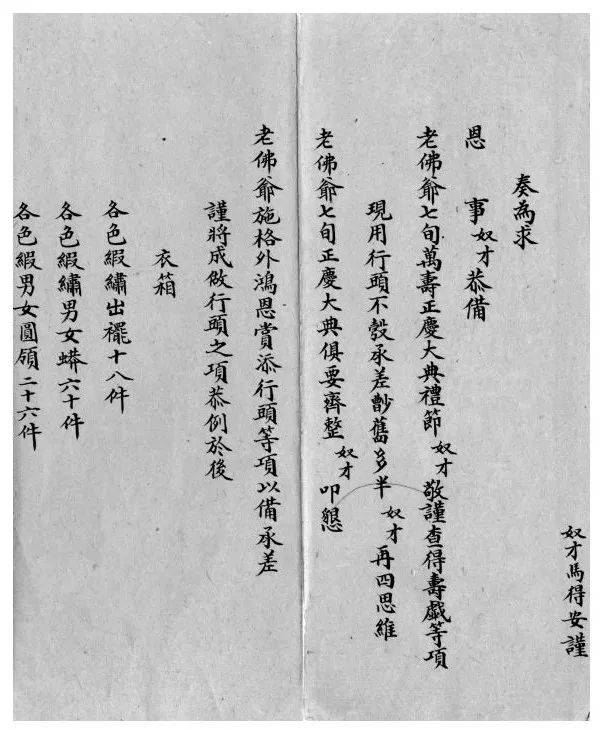 奴才馬得安謹
奏為求
恩　事奴才恭備
老佛爺七旬萬壽正慶大典禮節奴才敬謹查得壽戲等項
現用行頭不彀承差酁舊多半奴才再四思維
老佛爺七旬正慶大典俱要齊整奴才叩懇
老佛爺施格外鴻恩賞添行頭等項以備承差
謹將成做行頭之項恭例於後
衣箱
各色緞繡出襬十八件
各色緞繡男女蟒六十件
各色緞男女圓領二十六件